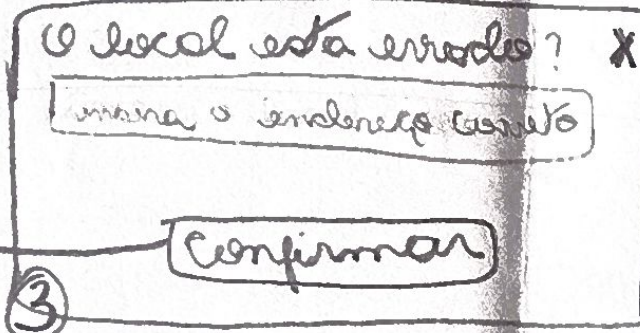 O local esta errado? X
insira o endereço correto
confirmar
3